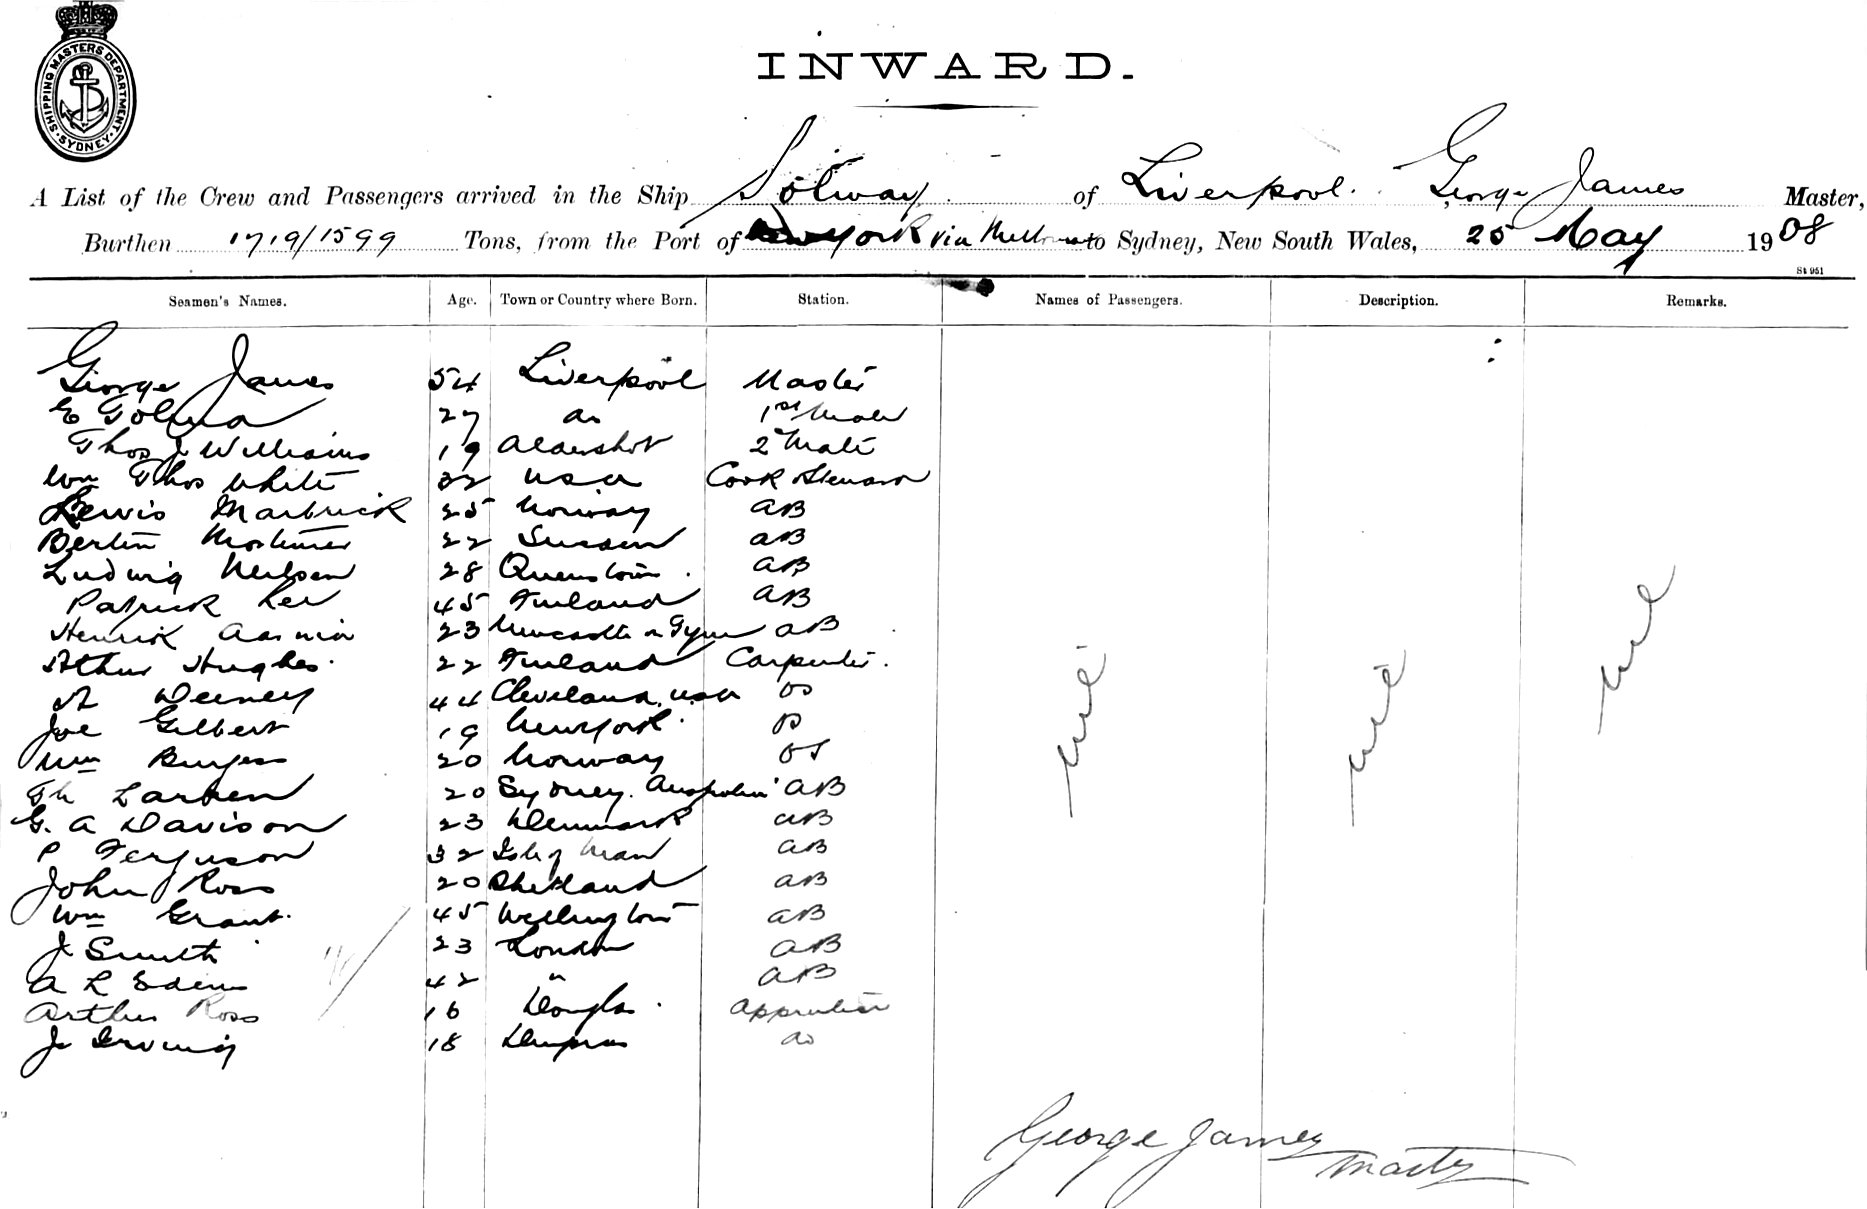 SHIPPING MASTERS DEPARTMENT · SYDNEY ·
INWARD.
A List of the Crew and Passengers arrived in the Ship Solway of Liverpool. George James Master,
Burthen 1719/1599 Tons, from the Port of New York via to Sydney, New South Wales, 25 May 1908
St 951
Seamen's Names. Age. Town or Country where Born. Station. Names of Passengers. Description. Remarks.
George James 54 Liverpool Master
E 27 do 1st Mate
Thos J Williams 19 Aldershot 2 Mate
Wm Thos White 32 USA Cook Steward
Lewis 25 Norway AB
Bertin Mortimer 22 AB
Ludwig Neilsen 28 Queenstown. AB
Patrick Lee 45 Finland AB
Henrik 23 Newcastle on Tyne AB
Arthur Hughes. 22 Finland Carpenter.
A Deeney 44 Cleveland. USA OS
Joe Gilbert 19 New York.
Wm Burgess 20 Norway OS
Th Larsen 20 Sydney. Australia AB
G. A Davison 23 Denmark AB
P Ferguson 32 Isle of Man AB
John Ross 20 Shetland AB
Wm Grant. 45 Wellington AB
J Smith 23 London AB
A L 42 " AB
Arthur Ross 16 Douglas. Apprentice
J Irving 18 do
George James
Master